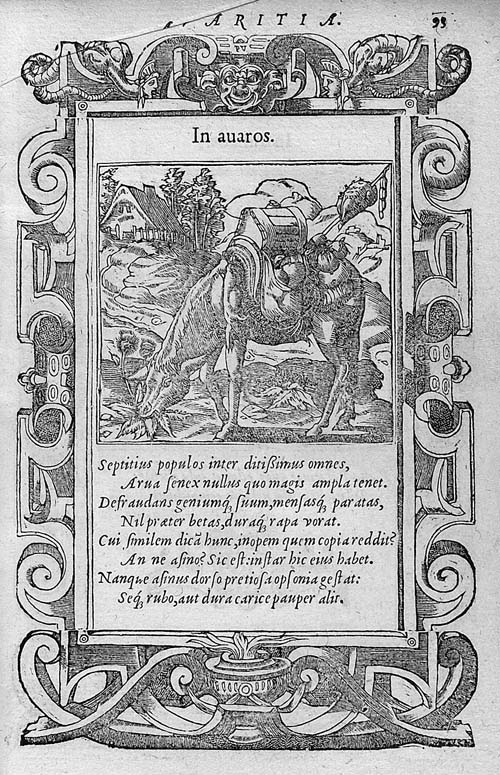 ARITIA. 93
PV
In auaros.
Septitius populos inter ditißimus omnes,
Arua senex nullus quo magis ampla tenet.
Defraudans geniumq́; suum, mensasq́; paratas,
Nil præter betas, duraq́; rapa vorat.
Cui similem dicã hunc, inopem quem copia reddit?
An ne asino? Sic est: instar hic eius habet.
Nanque asinus dorso pretiosa opsonia gestat:
Seq́; rubo, aut dura carice pauper alit.